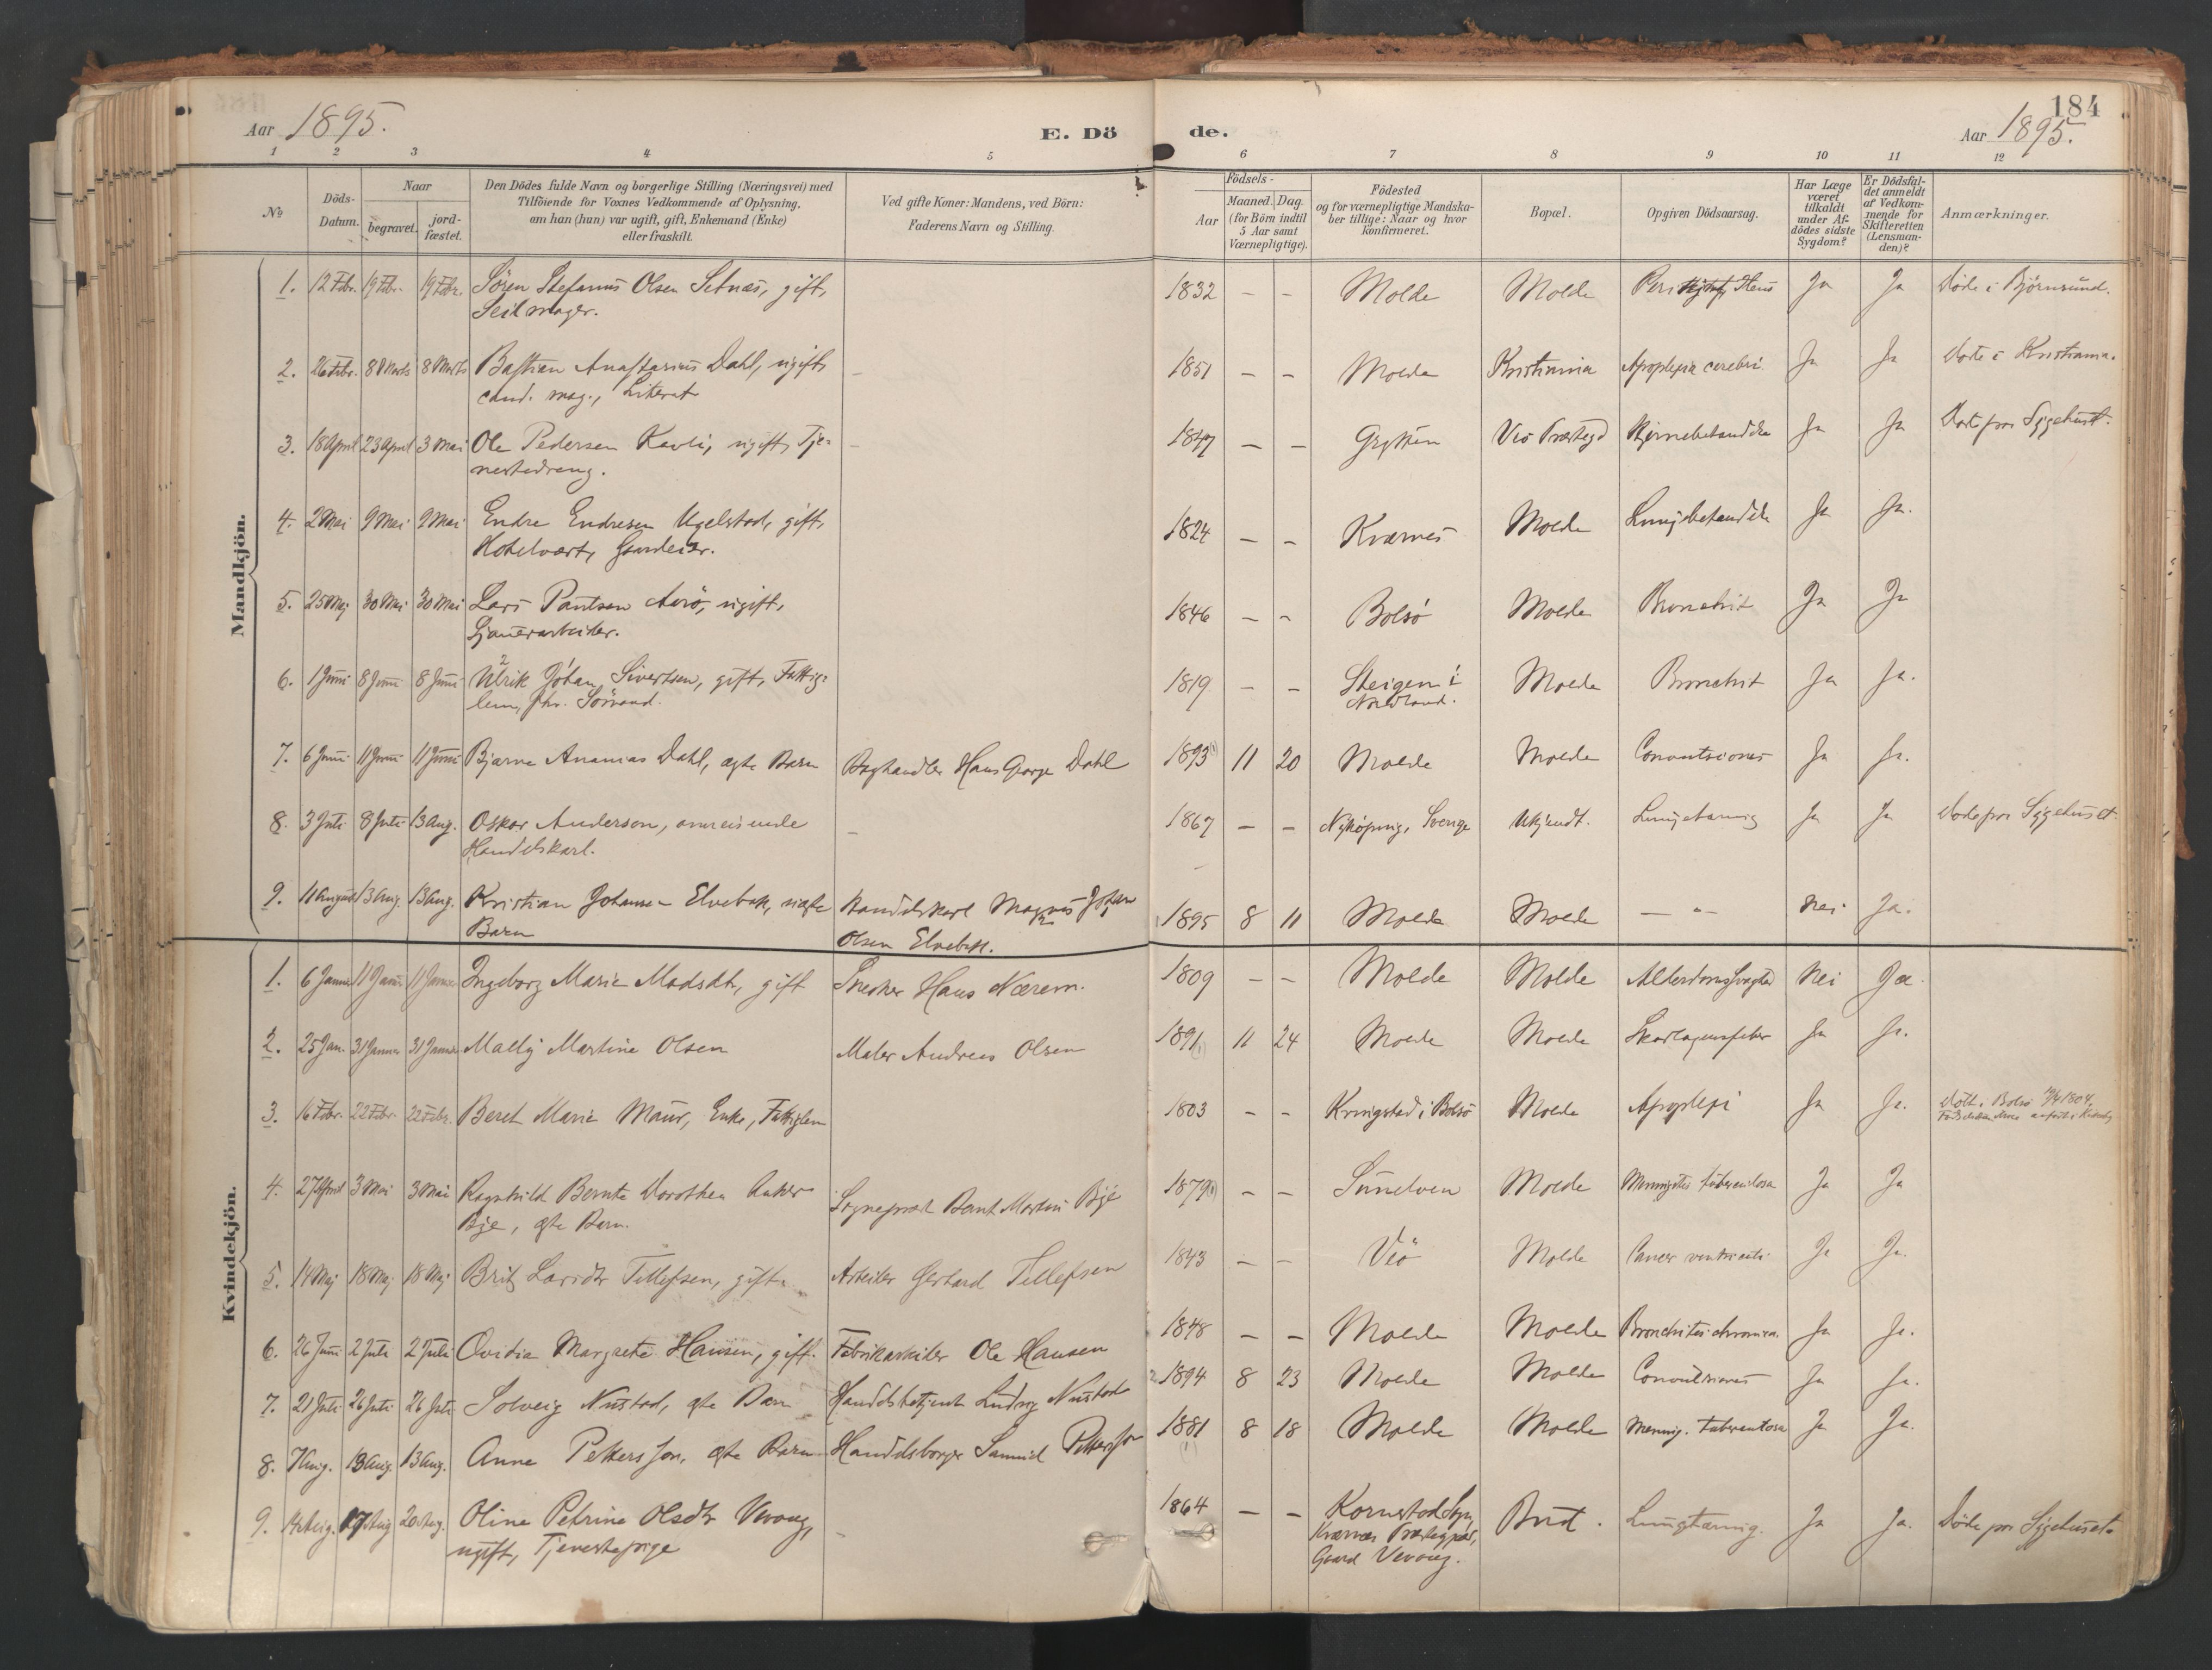 184
Aar 1895.
E. Dö
de.
Aar 1895.
1 2 3 4 5 6 7 8 9 10 11 12
No
Döds-
Datum.
Naar
begravet.
jord-
fæstet.
Den Dödes fulde Navn og borgerlige Stilling (Næringsvei) med
Tilföiende for Voxnes Vedkommende af Oplysning,
om han (hun) var ugift, gift, Enkemand (Enke)
eller fraskilt.
Ved gifte Koner: Mandens, ved Börn:
Faderens Navn og Stilling.
Födsels-
Aar
Maaned. Dag.
(for Börn indtil
5 Aar samt
Værnepligtige).
Födested
og for værnepligtige Mandska-
ber tillige: Naar og hvor
konfirmeret.
Bopæl.
Opgiven Dödsaarsag.
Har Læge
været
tilkaldt
under Af-
dödes sidste
Sygdom?
Er Dödsfal-
det anmeldt
af Vedkom-
mende for
Skifteretten
(Lensman-
den)?
Anmærkninger.
Mandkjön.
1. 12 Febr. 19 Febr. 19 Febr. Sören Stefanus Olsen Setnæs, gift, 1832 – – Molde Molde Ja Ja Döde i Björnsund.
Seilmager.
2. 26 Febr. 8 Marts 8 Marts Bastian Anastasius Dahl, ugift, – 1851 – – Molde Kristiania Apoplexia cerebri Ja Ja Döde i Kristiania.
cand. mag., Literat
3. 18 April 23 April 3 Mai Ole Pedersen Kavli, ugift, Tje- – 1847 – – Grytten Veö Præstegd Hjernebetændelse Ja Ja Döde paa Sygehuset.
nestedreng.
4. 2 Mai 9 Mai 9 Mai Endre Endresen Ugelstad, gift, 1824 – – Kværnes Molde Lungebetændelse Ja Ja.
Hotelvært, Gaardeier.
5. 25 Maj 30 Mai 30 Mai Lars Paulsen Aarö, ugift, 1846 – – Bolsö Molde Bronchit Ja Ja
Sjauerarbeider.
6. 1 Juni 8 Juni 8 Juni Ulrik Johan Sivertsen, gift, Fattig- 1819 – – Steigen i Molde Bronchit Ja Ja.
lem, fhv. Sömand. Nordland.
7. 6 Juni 11 Juni 11 Juni Bjarne Ananias Dahl, ægte Barn Boghandler Hans George Dahl 1893 11 20 Molde Molde Convulsiones Ja Ja.
8. 3 Juli 8 Juli 13 Aug. Oskar Anderson, omreisende – 1867 – – Nyköping, Sverige Ukjendt. Lungetæring Ja Ja Döde paa Sygehuset.
Handelskarl.
9. 11 August 13 Aug. 13 Aug. Kristian Johansen Elvebak, uægte Handelskarl Magnus Johan 1895 8 11 Molde Molde – " – Nei Ja.
Barn Olsen Elvebak.
Kvindekjön.
1. 6 Januar 11 Januar 11 Januar Ingeborg Marie Madsdt, gift Snedker Hans Nærem. 1809 – – Molde Molde Alderdomssvaghed Nei Ja.
2. 25 Jan. 31 Januar 31 Januar Mally Martine Olsen Maler Andreas Olsen 1891 11 24 Molde Molde Skarlagensfeber Ja Ja.
3. 16 Febr. 22 Febr. 22 Febr. Beret Marie Maur, Enke, Fattiglem 1803 – – Kringstad i Bolsö Molde Apoplexi Ja Ja. Döbt i Bolsö 1804.
4. 27 April 3 Mai 3 Mai Ragnhild Bernte Dorothea Anker Sogneprest Bernt Martin Bje 1879 – – Sunelven Molde Meningitis tuberculosa Ja Ja
Bje, ægte Barn.
5. 14 Maj 18 Maj 18 Maj Brit Larsdtr Tellefsen, gift. Arbeider Gerhard Tellefsen 1843 – – Veö Molde Cancer ventriculi Ja Ja.
6. 26 Juni 2 Juli 2 Juli Ovidia Margrete Hansen, gift. Fabrikarbeider Ole Hansen 1848 – – Molde Molde Bronchitis chronica. Ja Ja.
7. 21 Juli 26 Juli 26 Juli Solveig Nustad, ægte Barn Handelsbetjent Ludvig Nustad 1894 8 23 Molde Molde Convulsiones Ja Ja.
8. 7 Aug. 13 Aug. 13 Aug. Anne Petterssen, ægte Barn Handelsborger Samuel Petterssen 1881 8 18 Molde Molde Mening. tuberculosa Ja Ja.
9. 14 Aug. 17 Aug 20 Aug. Oline Petrine Olsdtr Vevang, – 1864 – – Kornstad Sogn, Bud. Lungetæring. Ja Ja. Döde paa Sygehuset.
ugift, Tjenestepige Kværnes Præstegjæld,
Gaard Vevang.